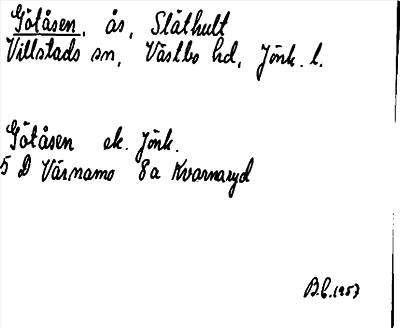 Götåsen, ås, Slåthult
Villstads sn, Västbo hd, Jönk. l.
Götåsen ek. Jönk.
5 D Värnamo 8a Kvarnaryd
B.C. 1957